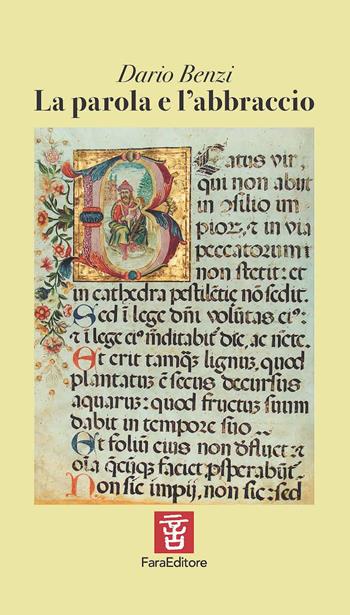 Dario Benzi
La parola e l'abbraccio
Beatus vir,
qui non abiit
in ↄsilio im
pioꝝ, ⁊ in via
peccatorum
non stetit: et
in cathedra pestilētie nō sedit.
Sed ī lege dn̄i volūtas
⁊ ī lege meditabit die, ac
Et erit tamqȝ lignum, quod
plantatum ē secus decursus
aquarum: quod fructum suum
dabit in tempore suo.
Et foliū eius non
faciet
Non sic impij, non sic: sed
FaraEditore